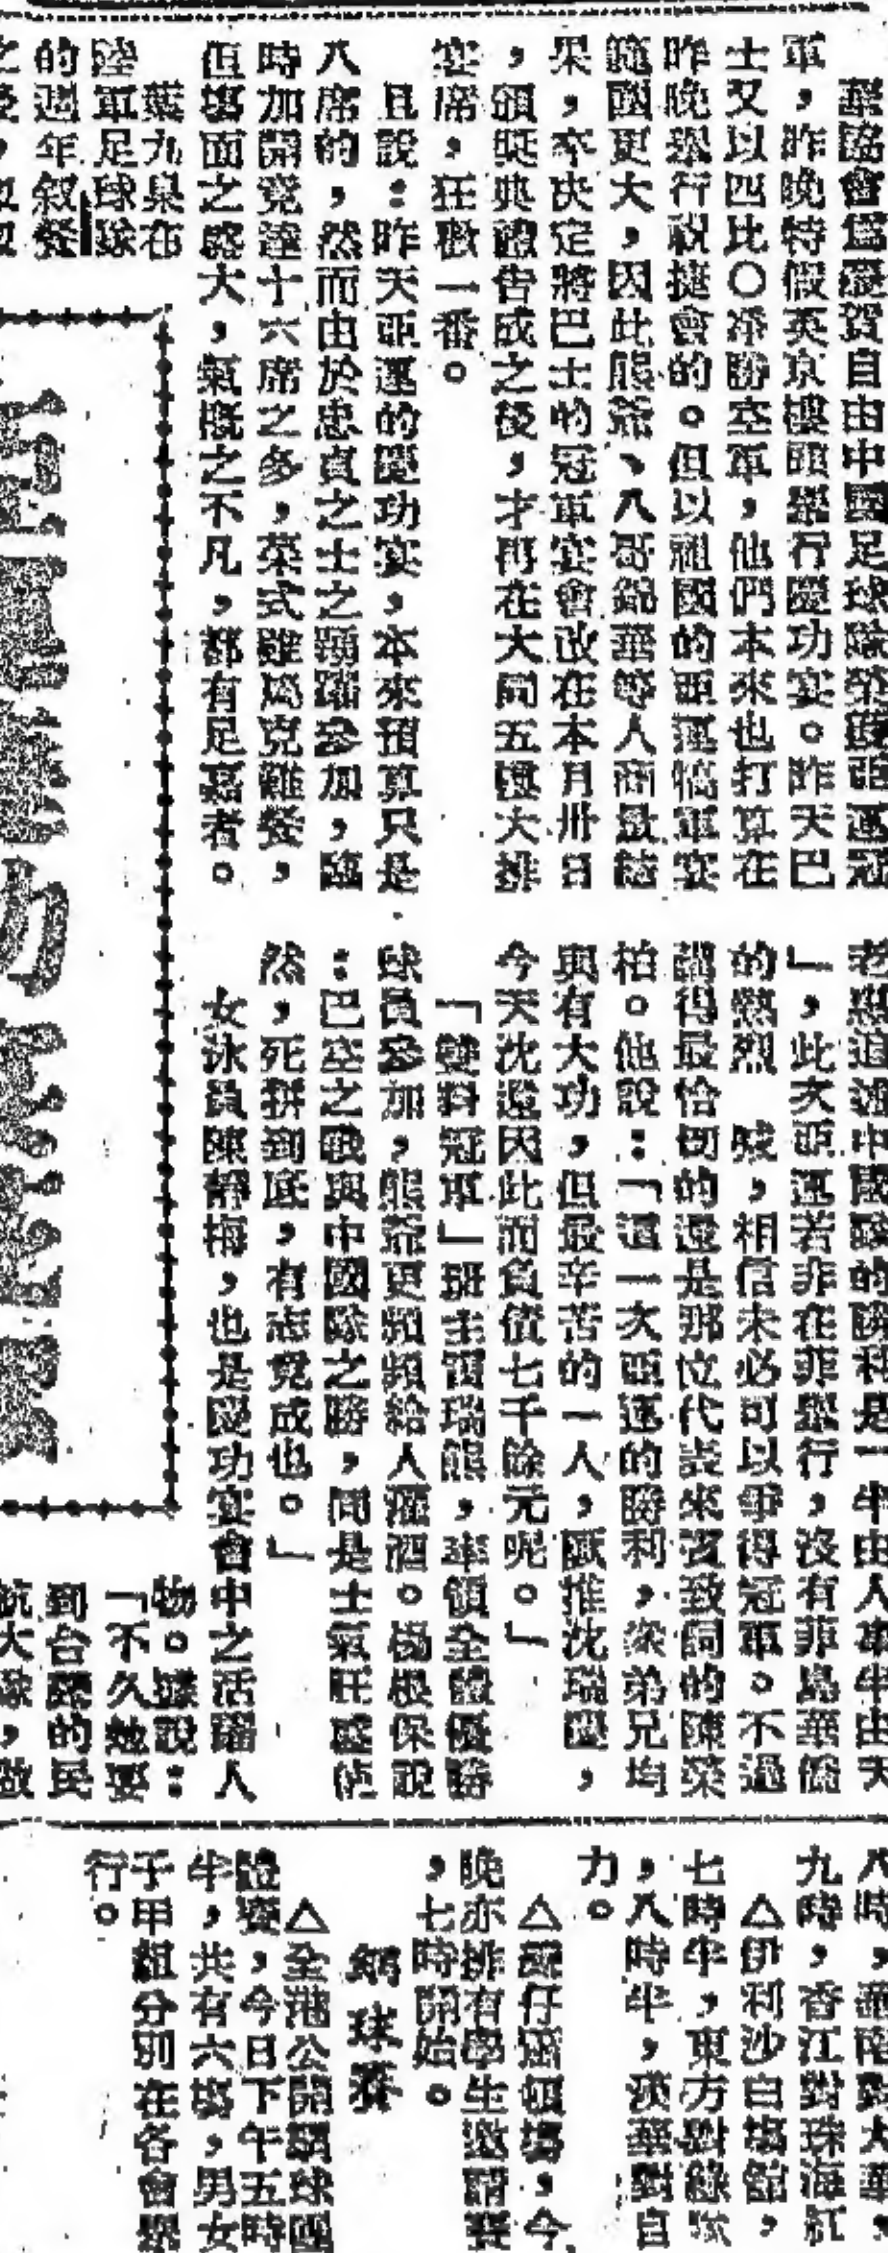 華協會為慶賀自由中國足球隊榮膺亞運冠
軍，昨晚特假英京樓頭舉行慶功宴。昨天巴
士又以四比〇淨勝空軍，他們本來也打算在
昨晚舉行祝捷會的。但以祖國的亞運犒軍宴
範圍更大，因此熊爺、八哥錦華等人商量結
果，卒決定將巴士的冠軍宴會改在本月卅日
，頒獎典禮告成之後，才再在大同五樓大排
宴席，狂歡一番。
且說：昨天亞運的慶功宴，本來預算只是
八席的，然而由於忠貞之士之踴躍參加，臨
時加開竟達十六席之多，菜式雖爲克難餐，
但場面之盛大，氣概之不凡，都有足嘉者。
葉九皋在
陸軍足球隊
的週年叙餐
的勝利是一半由人事半由天
」，此次亞運若非在菲舉行，沒有菲島華僑
的熱烈 喊，相信未必可以爭得冠軍。不過
講得最恰切的還是那位代表來賓致詞的陳榮
柏。他說：「這一次亞運的勝利，衆弟兄均
與有大功，但最辛苦的一人，厥推沈瑞慶，
今天沈還因此而負債七千餘元呢。」
「雙料冠軍」班主雷瑞熊，率領全體優勝
球員參加，熊爺更頻頻給人灌酒。楊根保說
：巴空之戰與中國隊之勝，同是士氣旺盛使
然，死拼到底，有志竟成也。」
女泳員陳靜梅，也是慶功宴會中之活躍人
物。據說：
「不久她要
到台灣的民
航大隊，做
亞運慶功宴
八時，嶺南對大華，
九時，香江對珠海紅
△伊利沙白場館，
七時半，東方對綠隊
，八時半，漢華對自
力。
△灣仔修頓場，今
晚亦排有學生邀請賽
，七時開始。
網球賽
△全港公開網球團
體賽，今日下午五時
半，共有六場，男女
子甲組分別在各會舉
行。